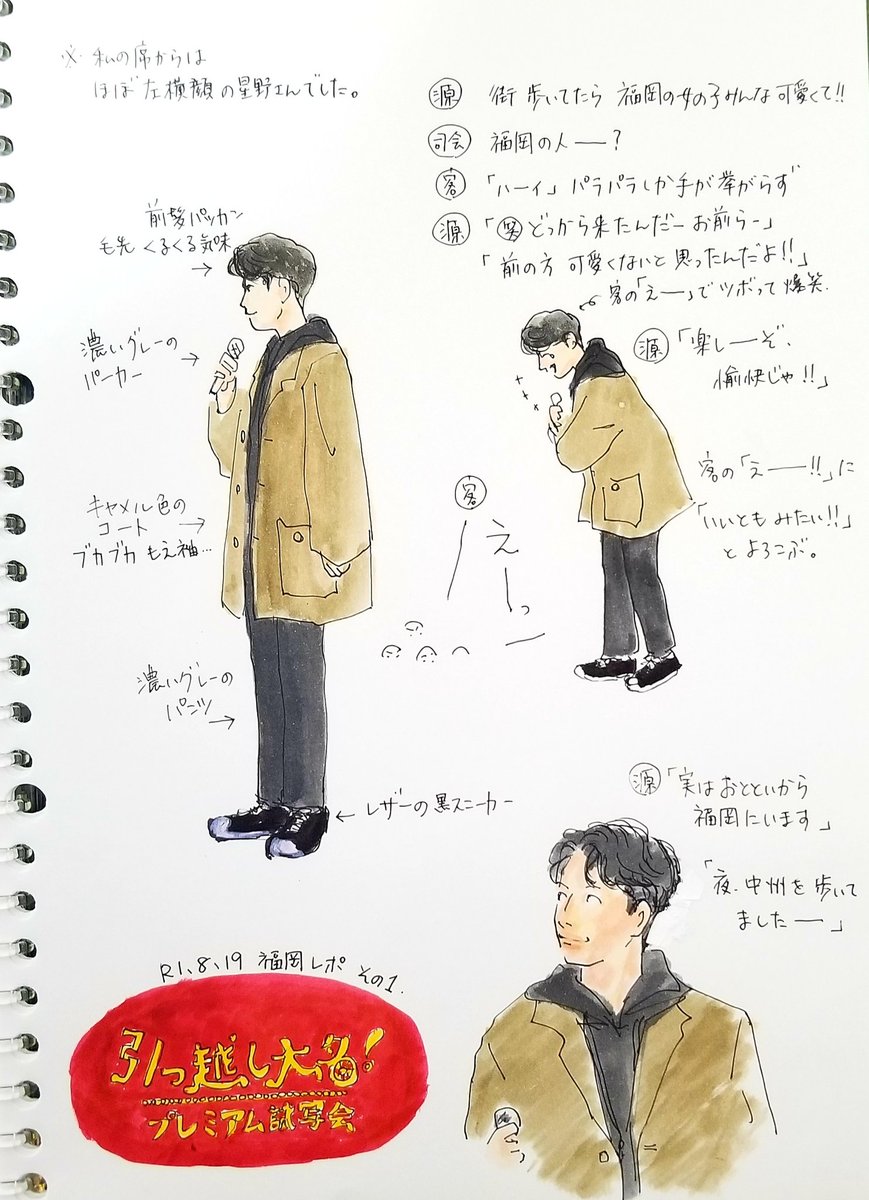 ※ 私の席からは
ほぼ左横顔の星野さんでした。
源 街歩いてたら 福岡の女の子みんな可愛くて!!
司会 福岡の人ー?
客 「ハーイ」パラパラしか手が挙がらず
源 「笑 どっから来たんだー お前らー」
「前の方 可愛くないと思ったんだよ!!」
客の「えー」でツボって爆笑.
源 「楽しーぞ、
愉快じゃ!!」
客の「えー!!」に
「いいともみたい!!」
とよろこぶ。
客
えーっ
前髪パッカン
毛先くるくる気味
→
濃いグレーの →
パーカー
キャメル色の
コート →
ブカブカ もえ袖…
濃いグレーの
パンツ →
← レザーの黒スニーカー
源 「実はおとといから
福岡にいます」
「夜、中州を歩いて
ましたー」
R1、8、19 福岡レポ その1.
引っ越し大名!
プレミアム試写会